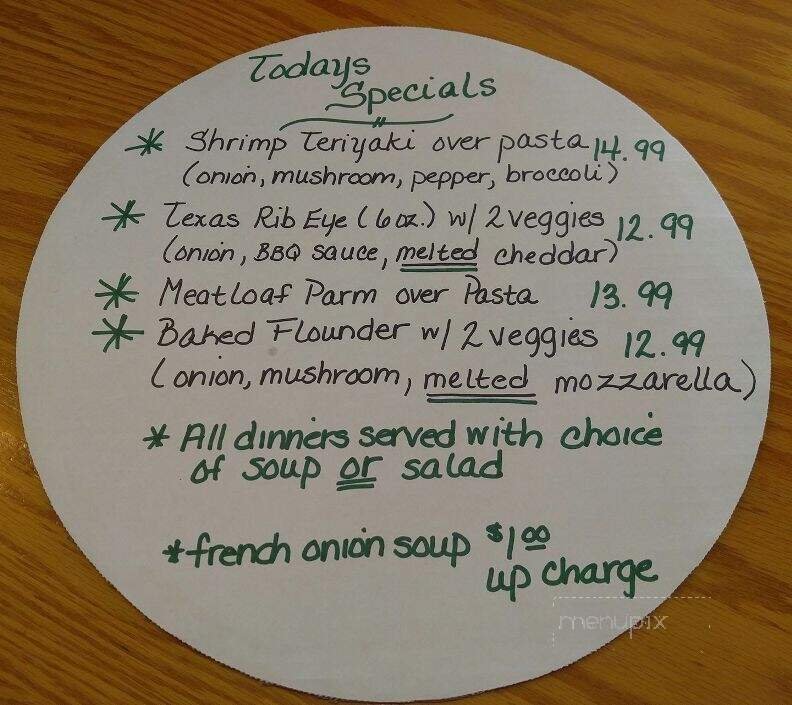 Todays
Specials
* Shrimp Teriyaki over pasta 14.99
(onion, mushroom, pepper, broccoli)
* Texas Rib Eye (6 oz.) w/ 2 veggies 12.99
(onion, BBQ sauce, melted cheddar)
* Meatloaf Parm over Pasta 13.99
* Baked Flounder w/ 2 veggies 12.99
(onion, mushroom, melted mozzarella)
* All dinners served with choice
of soup or salad
* french onion soup $1.00
up charge
menupix